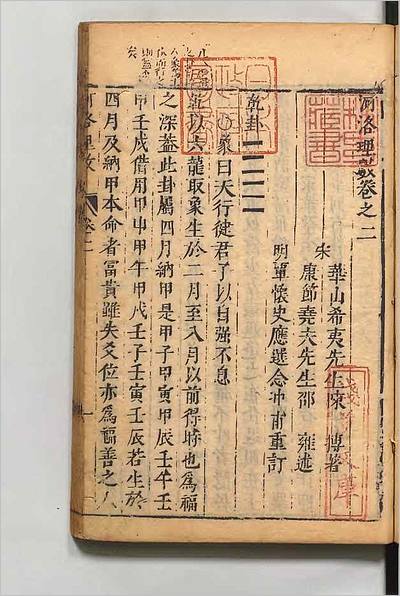 河洛理數卷之二
宋 華山希夷先生陳 摶著
康節堯夫先生邵 雍述
明 單懷史應選念冲甫重訂
乾卦
象曰天行健君子以自强不息
以六龍取象生於二月至八月以前得時也為福
之深葢此卦屬四月納甲是甲子甲寅甲辰壬午壬
甲壬戌借用甲申甲午甲戌壬子壬寅壬辰若生於
四月及納甲本命者富貴雖失爻位亦為福善之人
河洛理數 卷二 一